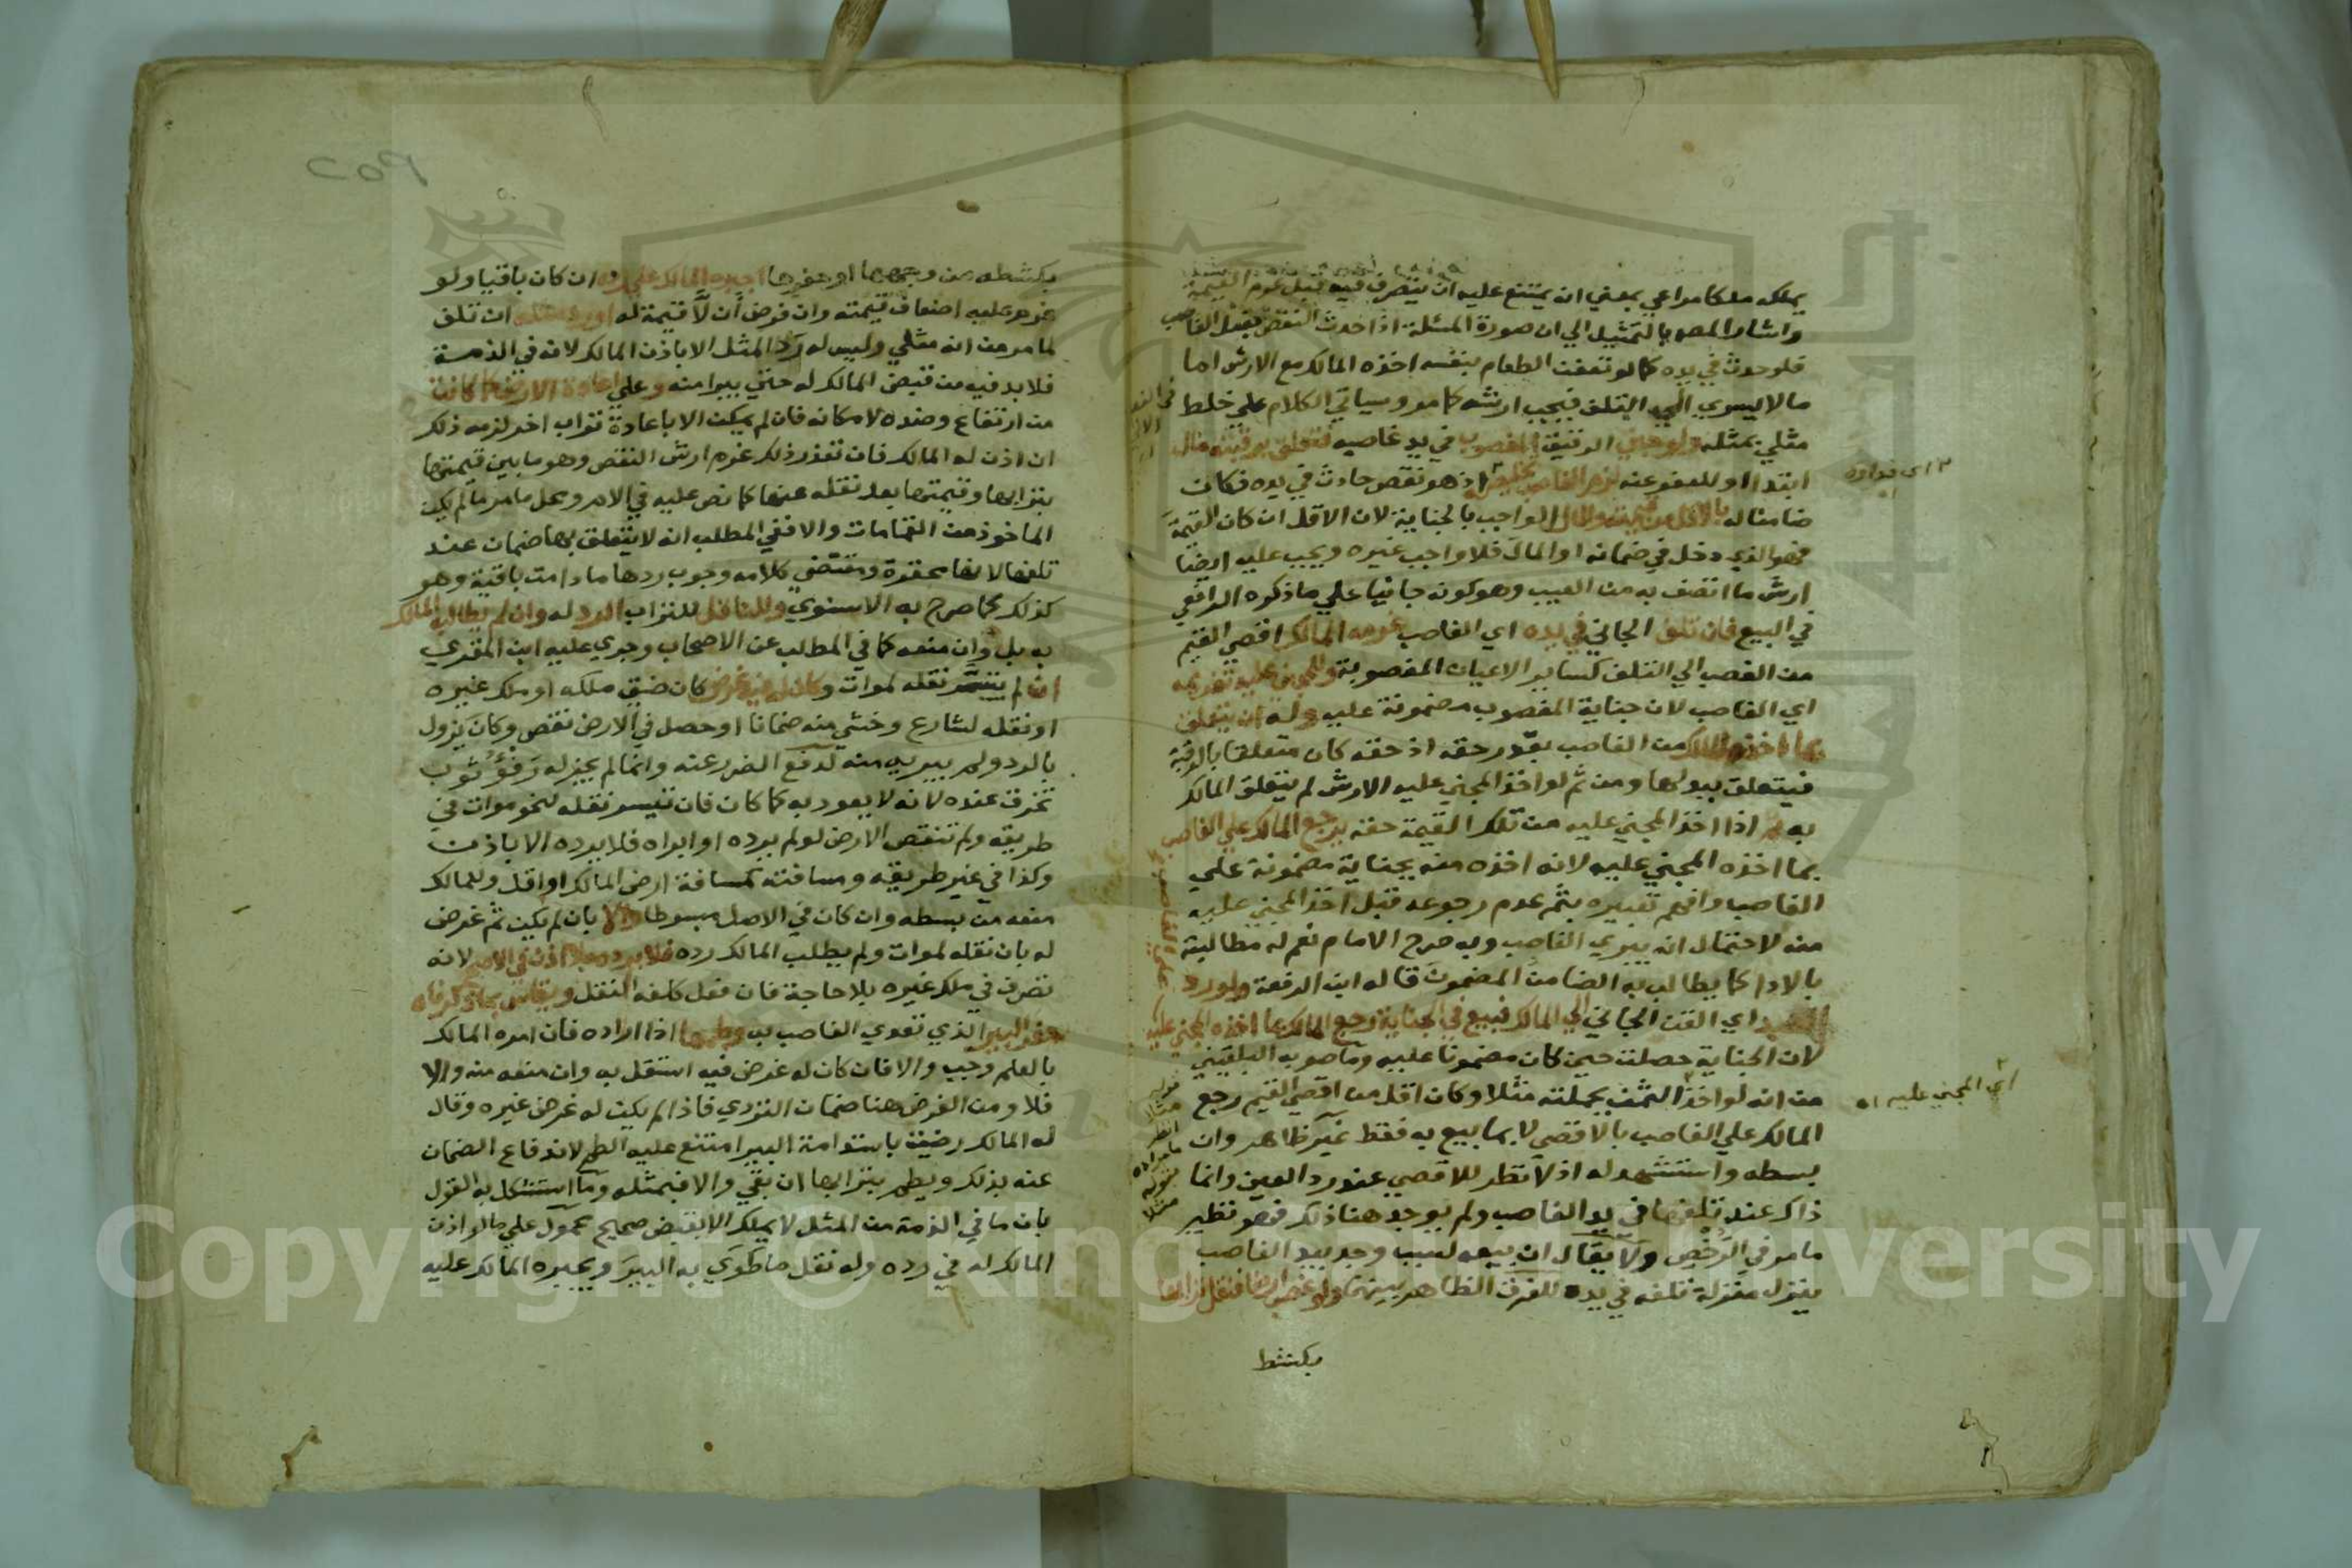 يملكه ملكا مراعي بمعني ان يمتنع عليه ان يتصرف فيه قبل غرم القيمة
واشار المص بالتمثيل الي ان صورة المسئلة اذا حدث النقص بفعل الغاصب
فلو حدث في يده كما لو تعفن الطعام بنفسه اخذه المالك مع الارش اما
ما لا يسري الي التلف فيجب ارشه كما مر وسياتي الكلام علي خلط
مثلي بمثله ولو جني الرقيق المغصوب في يد غاصبه فتعلق برقبته مال
ابتداا وللعفو عنه لزم الغاصب تخليصه اذ هو نقص حادث في يده فكان
ضامنا له بالاقل من قيمته والمال الواجب بالجناية لان الاقل ان كان القيمة
فهو الذي دخل في ضمانه او المال فلا واجب غيره ويجب عليه ايضا
ارش ما اتصف به من العيب وهو كونه جانيا علي ما ذكره الرافعي
في البيع فان تلف الجاني في يده اي الغاصب غرمه المالك اقصي القيم
من الغصب الي التلف كساير الاعيان المغصوبة وللمجني عليه تغريمه
اي الغاصب لان جناية المغصوب مضمونة عليه وله ان يتعلق
بما اخذه المالك من الغاصب بقدر حقه اذ حقه كان متعلقا بالرقبة
فيتعلق ببدلها ومن ثم لو اخذ المجني عليه الارش لم يتعلق المالك
به ثم اذا اخذ المجني عليه من تلك القيمة حقه يرجع المالك علي الغاصب
بما اخذه المجني عليه لانه اخذه منه بجناية مضمونة علي
الغاصب وافهم تعبيره بثم عدم رجوعه قبل اخذ المجني عليه
منه لاحتمال انه يبري الغاصب وبه صرح الامام نعم له مطالبته
بالادا كما يطالب به الضامن المضمون قاله ابن الرفعة ولو رد
العبد اي القن الجاني الي المالك فبيع في الجناية رجع المالك بما اخذه المجني عليه
لان الجناية حصلت حين كان مضمونا عليه وما صوبه البلقيني
من انه لو اخذ الثمن بجملته مثلا وكان اقل من اقصي القيم رجع
المالك علي الغاصب بالاقصي لا بما بيع به فقط غير ظاهر وان
بسطه واستشهد له اذ لا نظر للاقصي عند رد العين وانما
ذاك عند تلفها في يد الغاصب ولم يوجد هنا ذلك فهو نظير
ما مر في الرخص ولا يقال ان بيعه لسبب وجد بيد الغاصب
ينزل منزلة تلفه في يده للفرق الظاهر بينهما ولو غصب ارضا فنقل ترابها
بكشط
اي فداوه
اي المجني عليه اه
٢٥٩
بكشطه من وجهها او حفرها اجبره المالك علي رده ان كان باقيا ولو
غرم عليه اضعاف قيمته وان فرض ان لا قيمة له او رد مثله ان تلف
لما مر من انه مثلي وليس له رد المثل الا باذن المالك لانه في الذمة
فلا بد فيه من قبض المالك له حتي يبرا منه وعلي اعادة الارض كما كانت
من ارتفاع وضده لامكانه فان لم يمكن الا باعادة تراب اخر لزمه ذلك
ان اذن له المالك فان تعذر ذلك غرم ارش النقص وهو ما بين قيمتها
بترابها وقيمتها بعد نقله عنها كما نص عليه في الام ومحل ما مر ما لم يكن
الماخوذ من القمامات والا ففي المطلب انه لا يتعلق بها ضمان عند
تلفها لانها محقرة ومقتضي كلامه وجوب ردها ما دامت باقية وهو
كذلك كما صرح به الاسنوي وللناقل للتراب الرد له وان لم يطالبه المالك
به بل وان منعه كما في المطلب عن الاصحاب وجري عليه ابن المقري
ان لم يتيسر نقله لموات وكان له فيه غرض كان ضيق ملكه او ملك غيره
او نقله لشارع وخشي منه ضمانا او حصل في الارض نقص وكان يزول
بالرد ولم يبريه منه لدفع الضرر عنه وانما لم يجز له رفؤ ثوب
تخرق عنده لانه لا يعود به كما كان فان تيسر نقله لنحو موات في
طريقه ولم تنقص الارض لو لم يرده او ابراه فلا يرده الا باذن
وكذا في غير طريقه ومسافته كمسافة ارض المالك او اقل وللمالك
منعه من بسطه وان كان في الاصل مبسوطا والا بان لم يكن ثم غرض
له بان نقله لموات ولم يطلب المالك رده فلا يرده بلا اذن في الاصح لانه
تصرف في ملك غيره بلا حاجة فان فعل كلفه النقل ويقاس بما ذكرناه
حفر البير الذي تعدي الغاصب به وطمها اذا اراده فان امره المالك
بالطم وجب والا فان كان له غرض فيه استقل به وان منعه منه والا
فلا ومن الغرض هنا ضمان التردي فاذا لم يكن له غرض غيره وقال
له المالك رضيت باستدامة البير امتنع عليه الطم لاندفاع الضمان
عنه بذلك ويطم بترابها ان بقي والا فبمثله وما استشكل به القول
بان ما في الذمة من المثل لا يملك الا بقبض صحيح محمول علي ما لو اذن
المالك له في رده وله نقل ما طوي به البير ويجبره المالك عليه
Copyright © King Saud University